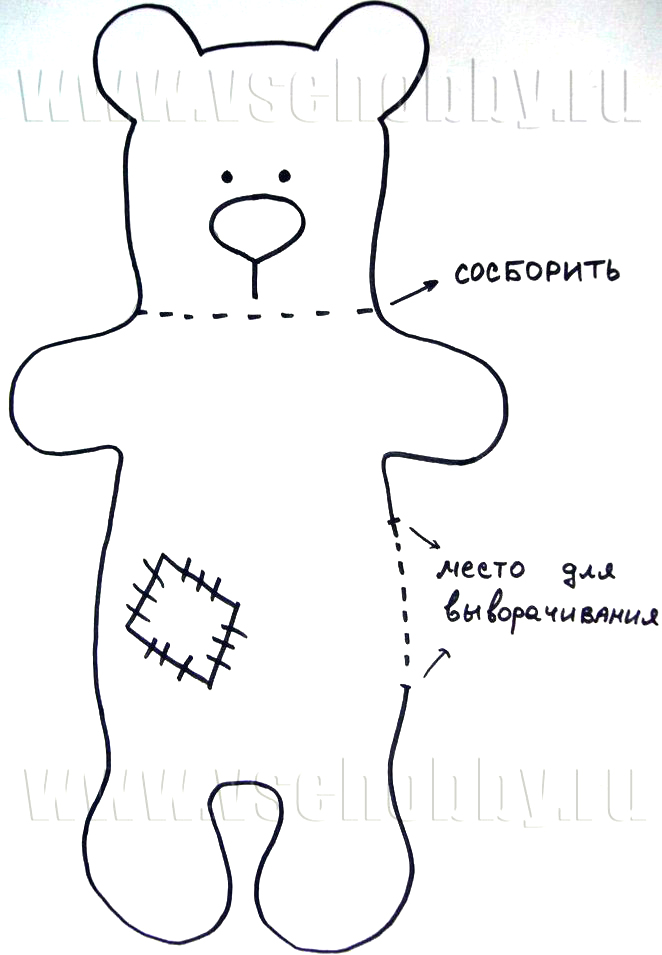 www.vsehobby.ru
СОСБОРИТЬ
место для
выворачивания
www.vsehobby.ru